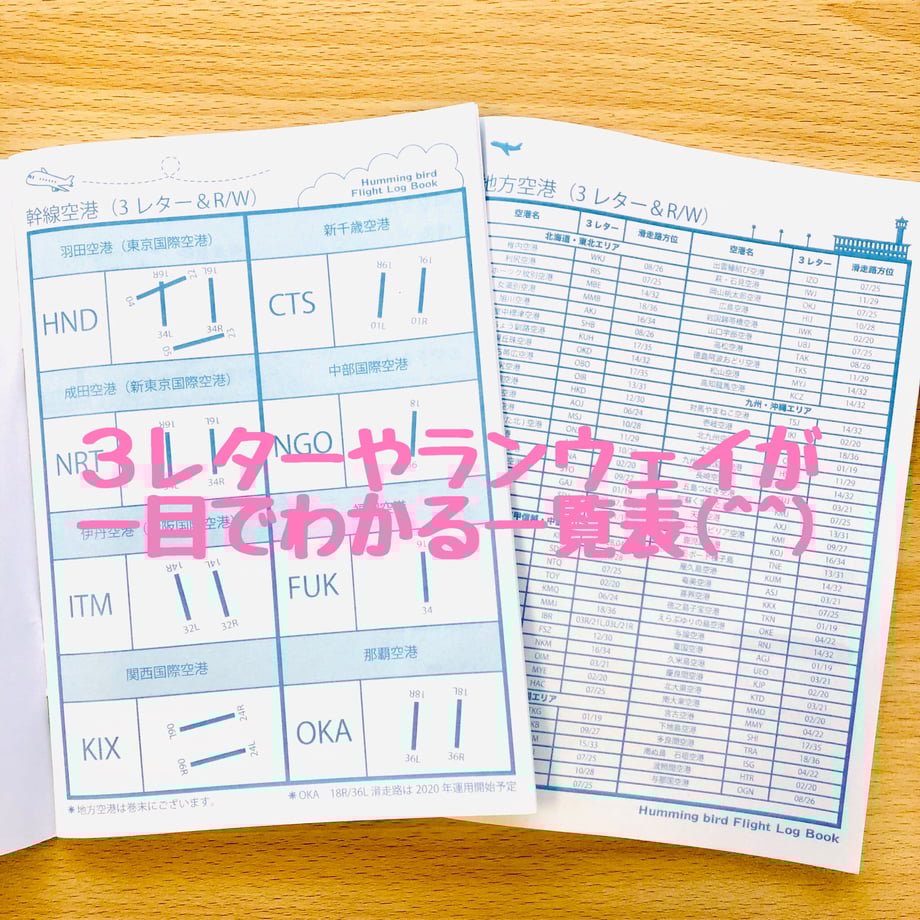 Humming bird
Flight Log Book
幹線空港（3 レター＆R/W）
羽田空港（東京国際空港）
新千歳空港
HND
16R
16L
22
04
34L
34R
05
23
CTS
19R
19L
01L
01R
成田空港（新東京国際空港）
中部国際空港
NRT
NGO
18
36
３レターやランウェイが
一目でわかる一覧表(^^)
伊丹空港
ITM
14R
14L
32L
32R
FUK
34
関西国際空港
那覇空港
KIX
06L
24R
06R
24L
OKA
18R
18L
36L
36R
＊地方空港は巻末にございます。
＊OKA 18R/36L 滑走路は 2020 年運用開始予定
地方空港（3 レター＆R/W）
空港名 ３レター 滑走路方位
北海道・東北エリア
稚内空港 WKJ 08/26
利尻空港 RIS 07/25
紋別空港 MBE 14/32
女満別空港 MMB 18/36
旭川空港 AKJ 16/34
中標津空港 SHB 08/26
釧路空港 KUH 17/35
丘珠空港 OKD 14/32
帯広空港 OBO 17/35
OIR 13/31
HKD 12/30
AOJ 06/24
MSJ 10/28
ONJ 11/29
GAJ 01/19
NTQ 07/25
TOY 02/20
KMQ 06/24
MMJ 18/36
IBR 03R/21L,03L/21R
FSZ 12/30
NKM 16/34
OIM 03/21
MYE 02/20
HAC 07/25
TKG 01/19
09/27
15/33
07/25
10/28
07/25
空港名 ３レター 滑走路方位
出雲縁結び空港 IZO 07/25
萩・石見空港 IWJ 11/29
岡山桃太郎空港 OKJ 07/25
広島空港 HIJ 10/28
岩国錦帯橋空港 IWK 02/20
山口宇部空港 UBJ 07/25
高松空港 TAK 08/26
徳島阿波おどり空港 TKS 11/29
松山空港 MYJ 14/32
高知龍馬空港 KCZ 14/32
九州・沖縄エリア
対馬やまねこ空港 TSJ 14/32
壱岐空港 IKI 02/20
北九州空港 18/36
01/19
11/29
長崎空港
五島つばき空港 03/21
07/25
AXJ 13/31
KMI 09/27
KOJ 16/34
TNE 13/31
屋久島空港 KUM 14/32
奄美空港 ASJ 03/21
喜界空港 KKX 07/25
徳之島子宝空港 TKN 01/19
えらぶゆりの島空港 OKE 04/22
与論空港 RNJ 14/32
粟国空港 AGJ 01/19
久米島空港 UEO 03/21
慶良間空港 KJP 02/20
北大東空港 KTD 03/21
南大東空港 MMD 02/20
宮古空港 MMY 04/22
下地島空港 SHI 17/35
多良間空港 TRA 18/36
南ぬ島 石垣空港 ISG 04/22
波照間空港 HTR 02/20
与那国空港 OGN 08/26
Humming bird Flight Log Book